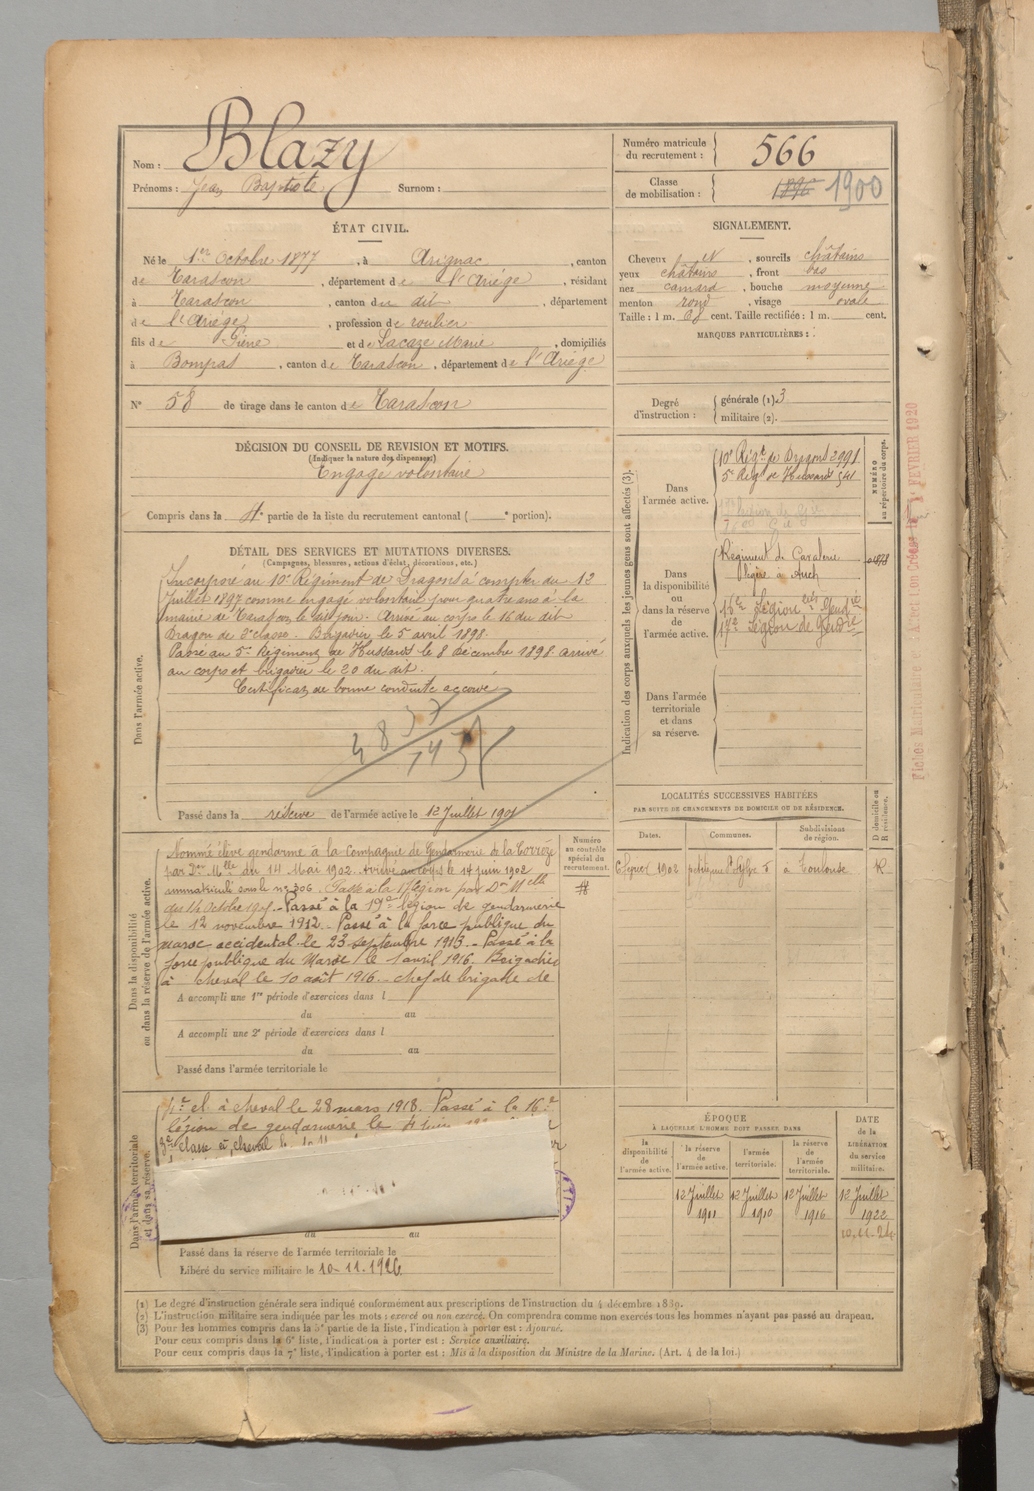 Nom : Blazy
Prénoms : Jean Baptiste Surnom :
Numéro matricule du recrutement : 566
Classe de mobilisation : 1896 1900
ÉTAT CIVIL.
Né le 1er Octobre 1877, à Arignac, canton
de Tarascon, département de l'Ariège, résidant
à Tarascon, canton du dit, département
de l'Ariège, profession de roulier
fils de Pierre et de Lacaze Marie, domiciliés
à Bompas, canton de Tarascon, département de l'Ariège
N° 58 de tirage dans le canton de Tarascon
SIGNALEMENT.
Cheveux N, sourcils châtains
yeux châtains, front bas
nez camard, bouche moyenne
menton rond, visage ovale
Taille : 1 m. 68 cent. Taille rectifiée : 1 m. cent.
MARQUES PARTICULIÈRES :
Degré d'instruction : générale (1) 3
militaire (2).
DÉCISION DU CONSEIL DE REVISION ET MOTIFS.
(Indiquer la nature des dispenses)
Engagé volontaire
Compris dans la 4e partie de la liste du recrutement cantonal ( e portion).
DÉTAIL DES SERVICES ET MUTATIONS DIVERSES.
(Campagnes, blessures, actions d'éclat, décorations, etc.)
Dans l'armée active.
Incorporé au 10e Régiment de Dragons à compter du 12
Juillet 1897 comme engagé volontaire pour quatre ans à la
mairie de Tarascon, le dit jour. Arrivé au corps le 16 du dit
Dragon de 2e classe. Brigadier le 5 avril 1898.
Passé au 5e Régiment de Hussards le 8 décembre 1898 arrivé
au corps et brigadier le 20 du dit.
Certificat de bonne conduite accordé
Passé dans la réserve de l'armée active le 12 Juillet 1901
Indication des corps auxquels les jeunes gens sont affectés (3).
NUMÉRO au répertoire du corps.
Dans l'armée active.
10e Régt de Dragons 2991
5e Régt de Hussards 541
Dans la disponibilité ou dans la réserve de l'armée active.
Régiment de Cavalerie
légère à Auch
17e Légion de Gendie
Dans l'armée territoriale et dans sa réserve.
Fiches Matriculaire et d'Affectation Créées le 1er FEVRIER 1920
Dans la disponibilité ou dans la réserve de l'armée active.
Numéro au contrôle spécial du recrutement.
Nommé élève gendarme à la Compagnie de Gendarmerie de la Corrèze
par Don Mlle du 14 Mai 1902. Arrivé au corps le 14 juin 1902
immatriculé sous le no 306. Passé à la 17 légion par Don Mlle
du 14 Octobre 1905. Passé à la 19e légion de gendarmerie
le 12 novembre 1912. Passé à la force publique du
maroc occidental le 23 septembre 1913. Passé à la
force publique du Maroc le 1 avril 1916. Brigadier
à cheval le 10 août 1916. chef de brigade de
A accompli une 1re période d'exercices dans l
du au
A accompli une 2e période d'exercices dans l
du au
Passé dans l'armée territoriale le
LOCALITÉS SUCCESSIVES HABITÉES
PAR SUITE DE CHANGEMENTS DE DOMICILE OU DE RÉSIDENCE.
Dates. Communes. Subdivisions de région. D domicile ou R résidence.
1902 à Toulouse R
Dans l'armée territoriale et dans sa réserve.
4e cl. à cheval le 28 mars 1918. Passé à la 16e
légion de gendarmerie le
3e classe à cheval le
du au
Passé dans la réserve de l'armée territoriale le
Libéré du service militaire le 10-11-1926
ÉPOQUE
À LAQUELLE L'HOMME DOIT PASSER DANS
la disponibilité de l'armée active.
la réserve de l'armée active.
l'armée territoriale.
la réserve de l'armée territoriale.
DATE de la LIBÉRATION du service militaire.
12 Juillet 1901
12 Juillet 1910
12 Juillet 1916
12 Juillet 1922
(1) Le degré d'instruction générale sera indiqué conformément aux prescriptions de l'instruction du 4 décembre 1889.
(2) L'instruction militaire sera indiquée par les mots : exercé ou non exercé. On comprendra comme non exercés tous les hommes n'ayant pas passé au drapeau.
(3) Pour les hommes compris dans la 5e partie de la liste, l'indication à porter est : Ajourné.
Pour ceux compris dans la 6e liste, l'indication à porter est : Service auxiliaire.
Pour ceux compris dans la 7e liste, l'indication à porter est : Mis à la disposition du Ministre de la Marine. (Art. 4 de la loi.)